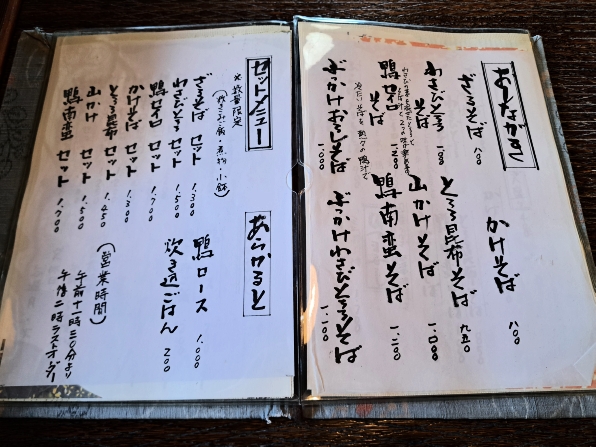 おしながき
ざるそば 八〇〇
わさびとろろそば 一、〇〇〇
鴨セイロそば 一、二〇〇
冷たいそばを熱々の鴨汁で
ぶっかけおろしそば 一、〇〇〇
かけそば 八〇〇
とろろ昆布そば 九五〇
山かけそば 一、〇〇〇
鴨南蛮そば 一、二〇〇
ぶっかけわさびとろろそば 一、一〇〇
セットメニュー
※数量限定
(炊き込み飯・煮物・小鉢)
ざるそば セット 一、三〇〇
わさびとろろ セット 一、五〇〇
鴨セイロ セット 一、七〇〇
かけそば セット 一、三〇〇
とろろ昆布 セット 一、四五〇
山かけ セット 一、五〇〇
鴨南蛮 セット 一、七〇〇
あらかると
鴨ロース 一、〇〇〇
炊き込ごはん 二〇〇
(営業時間)
午前十一時三〇分より
午後二時ラストオーダー